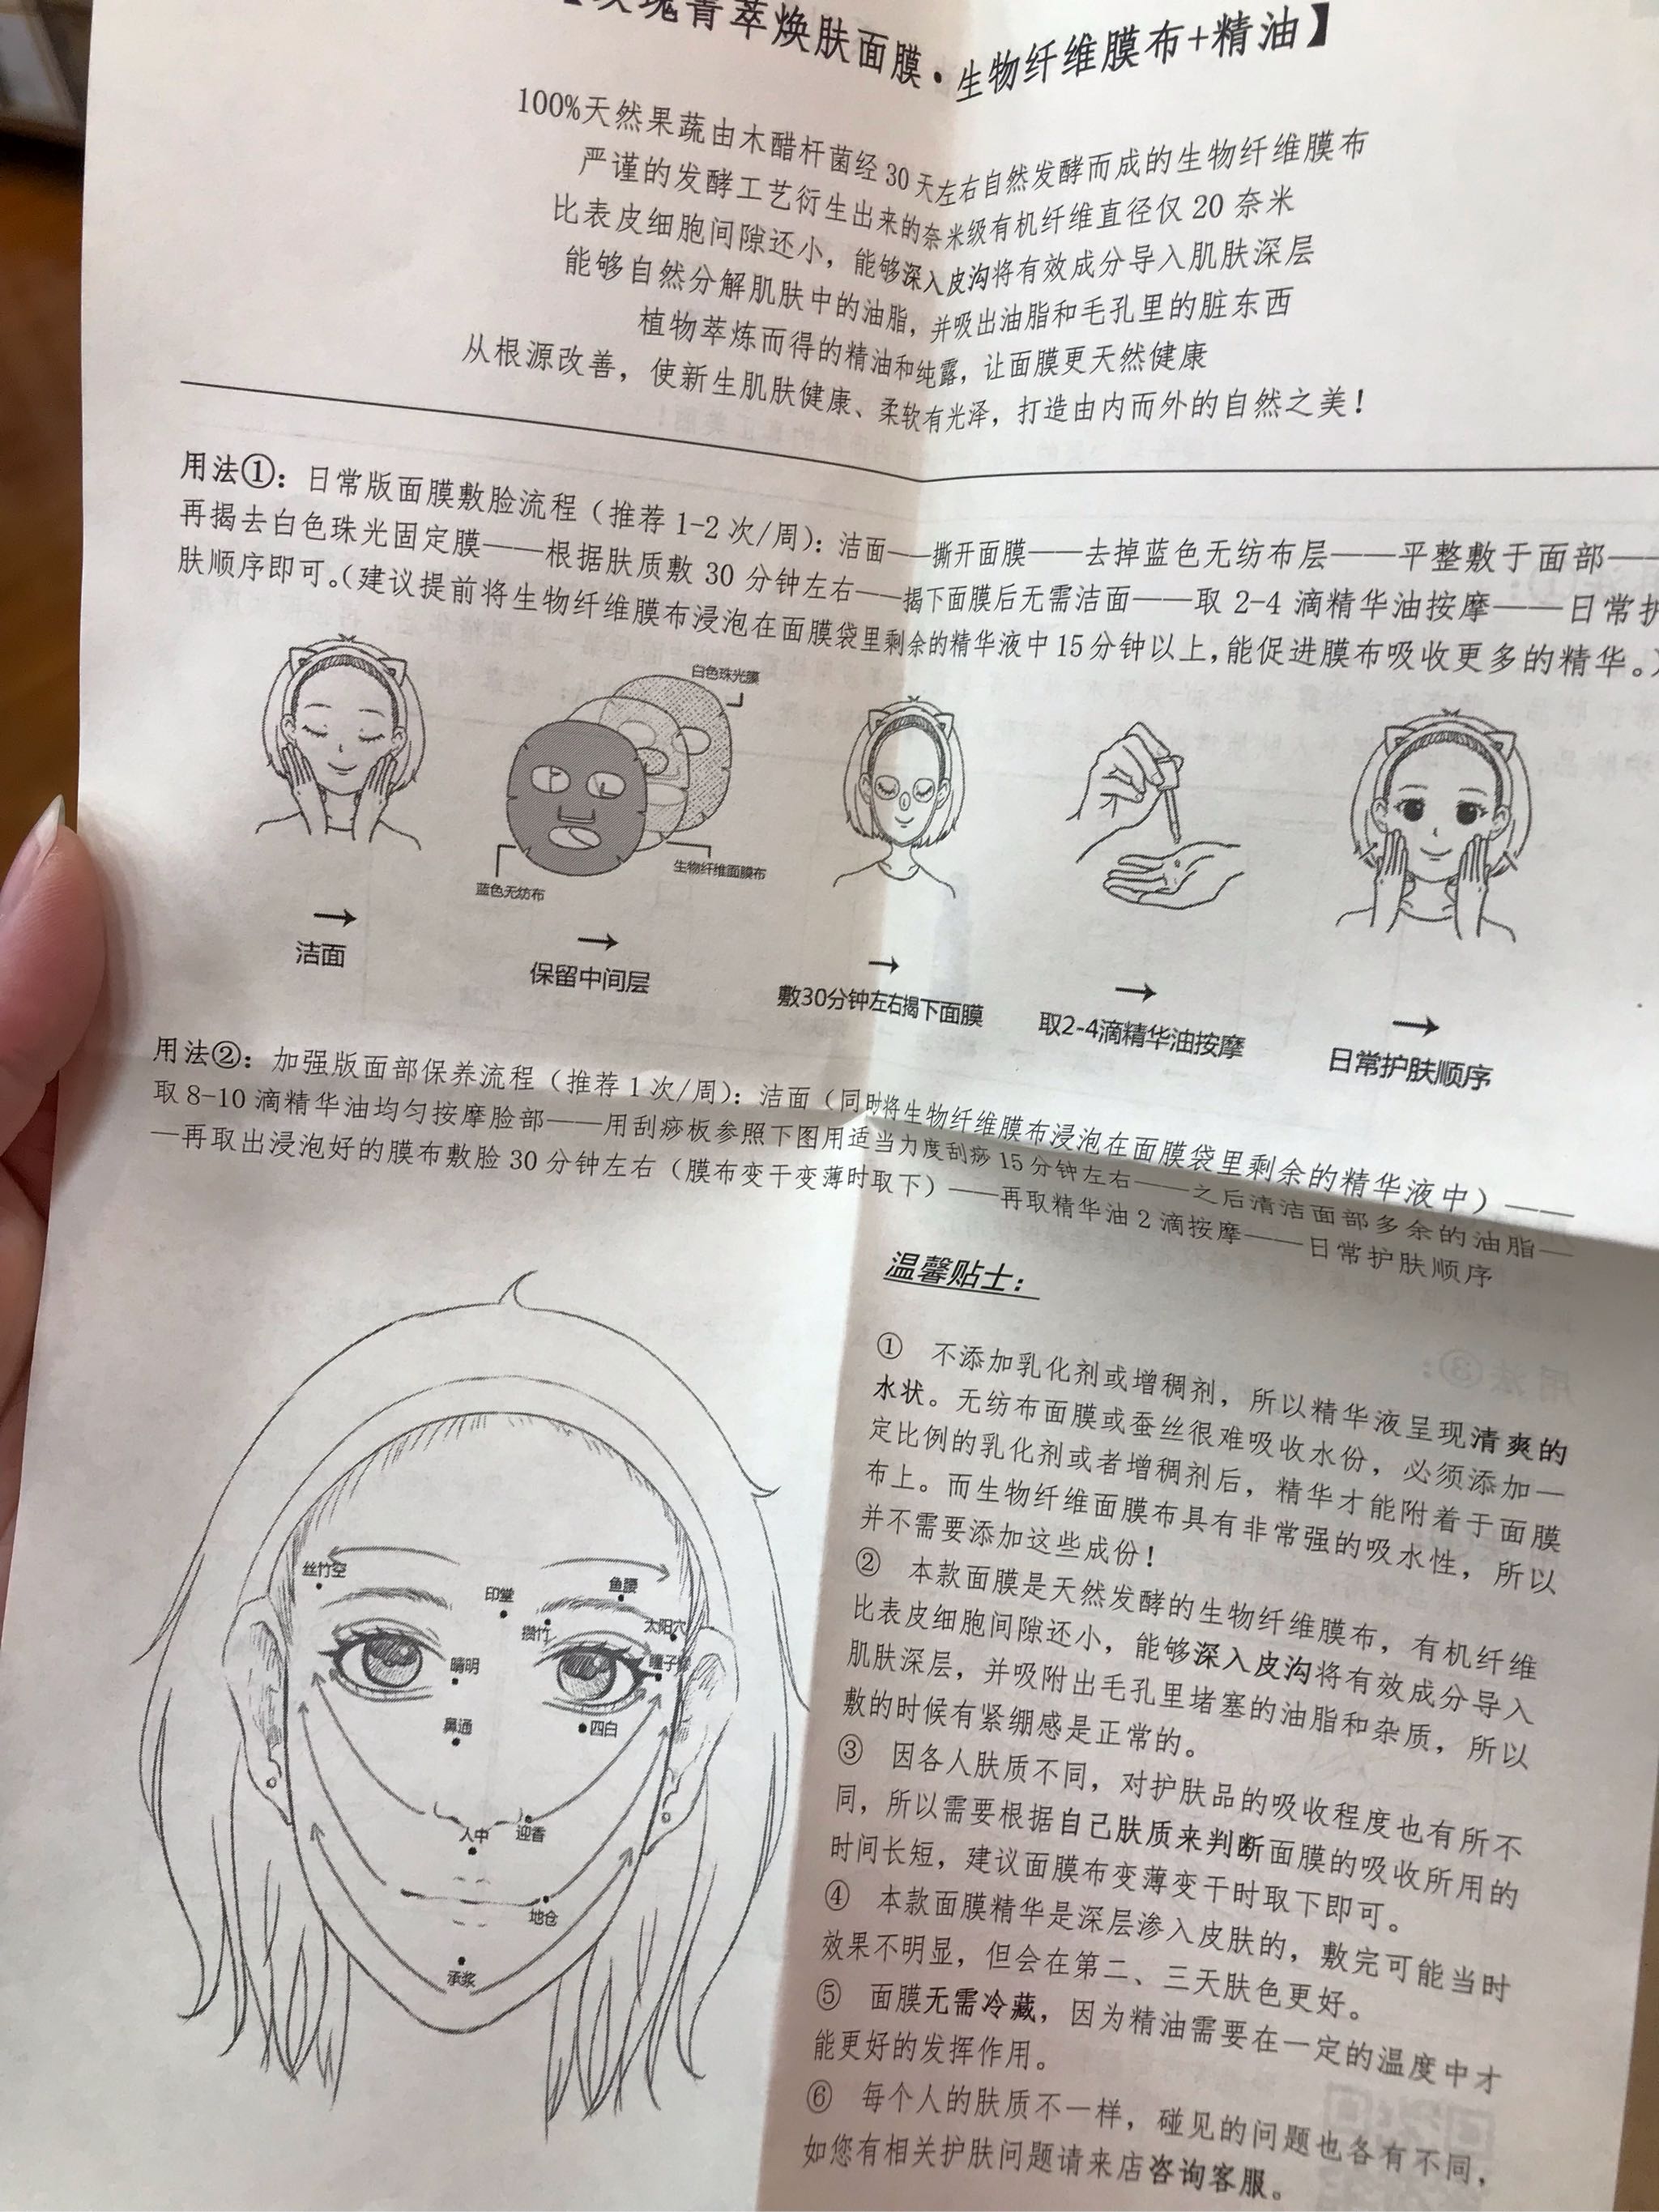 玫瑰菁萃焕肤面膜·生物纤维膜布+精油】
100%天然果蔬由木醋杆菌经30天左右自然发酵而成的生物纤维膜布
严谨的发酵工艺衍生出来的奈米级有机纤维直径仅20奈米
比表皮细胞间隙还小，能够深入皮沟将有效成分导入肌肤深层
能够自然分解肌肤中的油脂，并吸出油脂和毛孔里的脏东西
植物萃炼而得的精油和纯露，让面膜更天然健康
从根源改善，使新生肌肤健康、柔软有光泽，打造由内而外的自然之美！
用法①：日常版面膜敷脸流程（推荐1-2次/周）：洁面——撕开面膜——去掉蓝色无纺布层——平整敷于面部——
再揭去白色珠光固定膜——根据肤质敷30分钟左右——揭下面膜后无需洁面——取2-4滴精华油按摩——日常护
肤顺序即可。（建议提前将生物纤维膜布浸泡在面膜袋里剩余的精华液中15分钟以上，能促进膜布吸收更多的精华。）
白色珠光膜
生物纤维面膜布
蓝色无纺布
→
洁面
→
保留中间层
→
敷30分钟左右揭下面膜
→
取2-4滴精华油按摩
→
日常护肤顺序
用法②：加强版面部保养流程（推荐1次/周）：洁面（同时将生物纤维膜布浸泡在面膜袋里剩余的精华液中）——
取8-10滴精华油均匀按摩脸部——用刮痧板参照下图用适当力度刮痧15分钟左右——之后清洁面部多余的油脂—
—再取出浸泡好的膜布敷脸30分钟左右（膜布变干变薄时取下）——再取精华油2滴按摩——日常护肤顺序
丝竹空
印堂
鱼腰
攒竹
太阳穴
睛明
瞳子
鼻通
四白
人中
迎香
地仓
承浆
温馨贴士：
① 不添加乳化剂或增稠剂，所以精华液呈现清爽的
水状。无纺布面膜或蚕丝很难吸收水份，必须添加一
定比例的乳化剂或者增稠剂后，精华才能附着于面膜
布上。而生物纤维面膜布具有非常强的吸水性，所以
并不需要添加这些成份！
② 本款面膜是天然发酵的生物纤维膜布，有机纤维
比表皮细胞间隙还小，能够深入皮沟将有效成分导入
肌肤深层，并吸附出毛孔里堵塞的油脂和杂质，所以
敷的时候有紧绷感是正常的。
③ 因各人肤质不同，对护肤品的吸收程度也有所不
同，所以需要根据自己肤质来判断面膜的吸收所用的
时间长短，建议面膜布变薄变干时取下即可。
④ 本款面膜精华是深层渗入皮肤的，敷完可能当时
效果不明显，但会在第二、三天肤色更好。
⑤ 面膜无需冷藏，因为精油需要在一定的温度中才
能更好的发挥作用。
⑥ 每个人的肤质不一样，碰见的问题也各有不同，
如您有相关护肤问题请来店咨询客服。